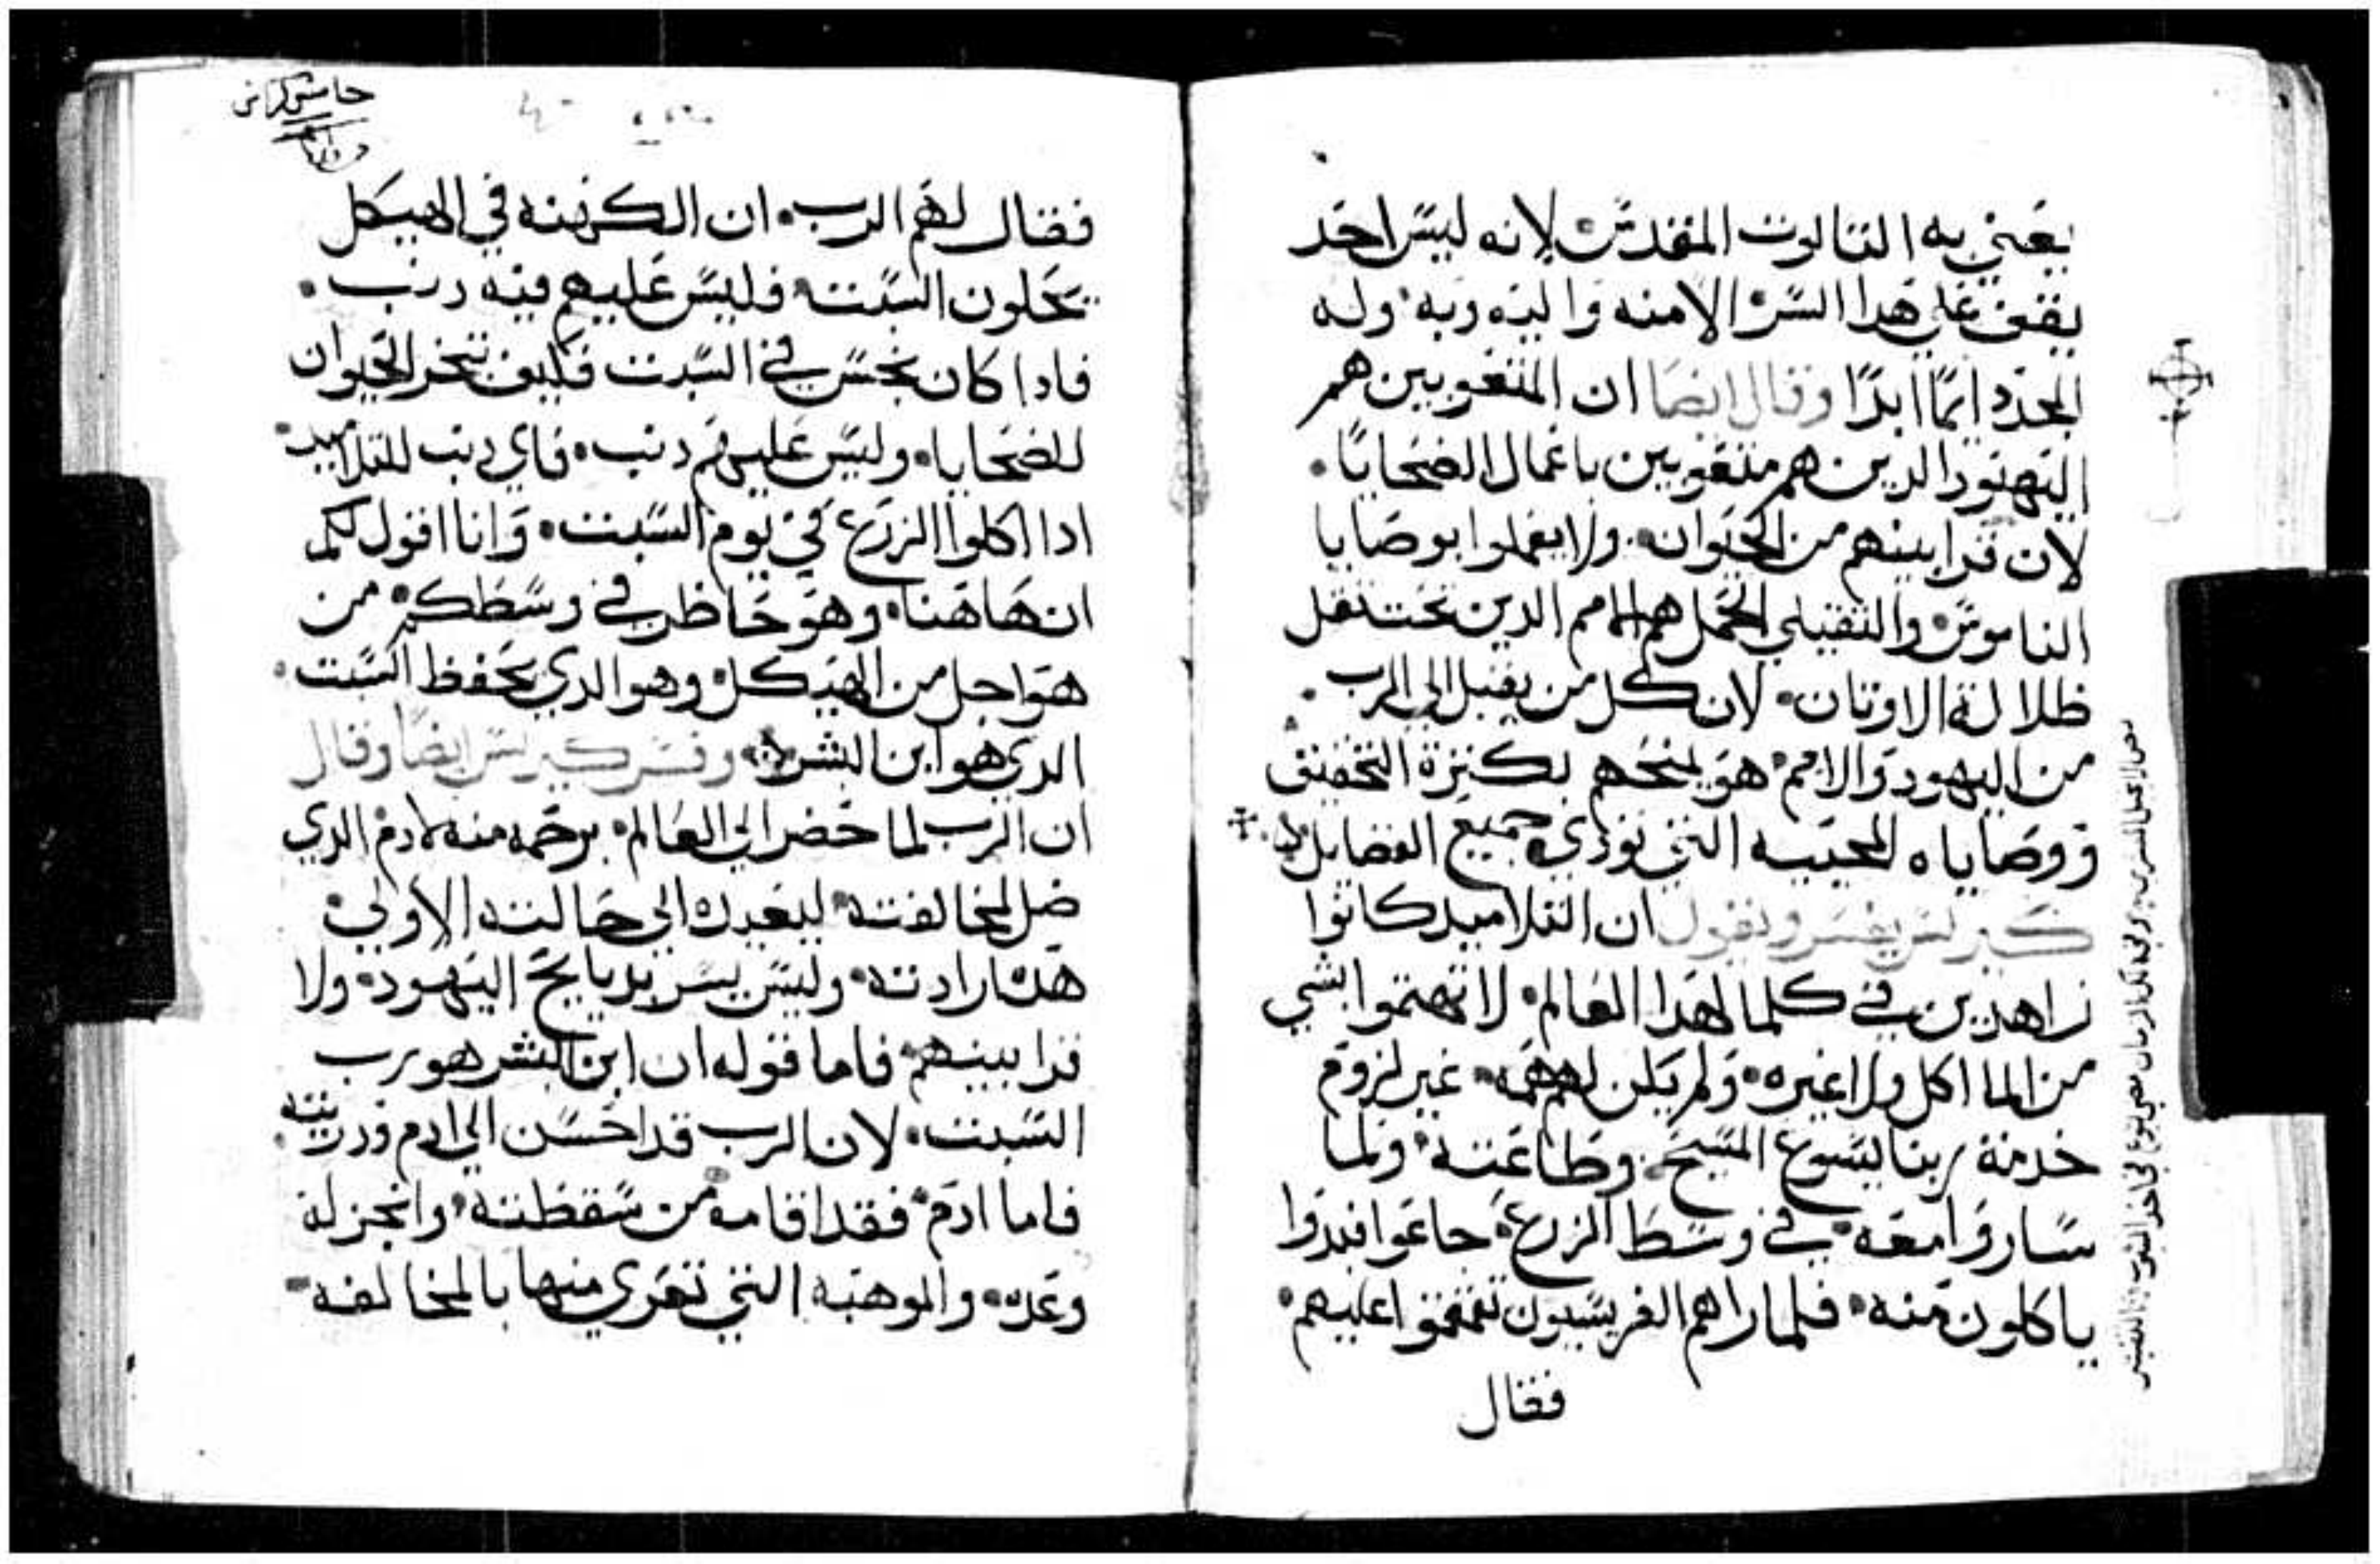 يعني به الثالوث المقدس لانه ليس احد
يقف علي هدا السر الا منه واليه وبه وله
المجد دايمًا ابدًا وقال ايضا ان المتعوبين هم
اليهود الدين هم متعوبين باعمال الضحايا
لان قرابينهم من الحيوان ولا يعملوا بوصايا
الناموس والثقيلي الحمل هم الامم الدين تحت ثقل
ظلالة الاوتان لان كل من يقبل الي الرب
من اليهود والامم هو يمنحهم بكترة التخفيف
ووصاياه المحييه التي تودي جميع الفضايل
كيرلس يفسر ويقول ان التلاميد كانوا
زاهدين في كلما لهدا العالم لا تهتموا بشي
من الماكل ولا غيره ولم يكن لهم همه غير لزوم
خدمة ربنا يسوع المسيح وطاعته ولما
ساروا معه في وسط الزرع جاعوا فبدوا
ياكلون منه فلما راهم الفريسيون تقمقموا عليهم
فقال
فقال لهم الرب ان الكهنه في الهيكل
يحلون السبت فليس عليهم فيه دنب
فادا كان نجس في السبت فكيف تنحر الحيوان
للضحايا وليس عليهم دنب فاي دنب للتلاميد
ادا اكلوا الزرع في يوم السبت وانا اقول لكم
ان هاهنا وهو حاظر في وسطكم من
هو اجل من الهيكل وهو الدي يحفظ السبت
الدي هو ابن البشر وفسر كيرلس ايضا وقال
ان الرب لما حضر الي العالم برحمه منه لادم الدي
ضل لمخالفته ليعيده الي حالته الاولي
هده ارادته وليس يسر بدبايح اليهود ولا
قرابينهم فاما قوله ان ابن البشر هو رب
السبت لان الرب قد احسن الي ادم ودريته
فاما ادم فقد اقامه من سقطته وانجز له
وعده والموهبه التي تعري منها بالمخالفه